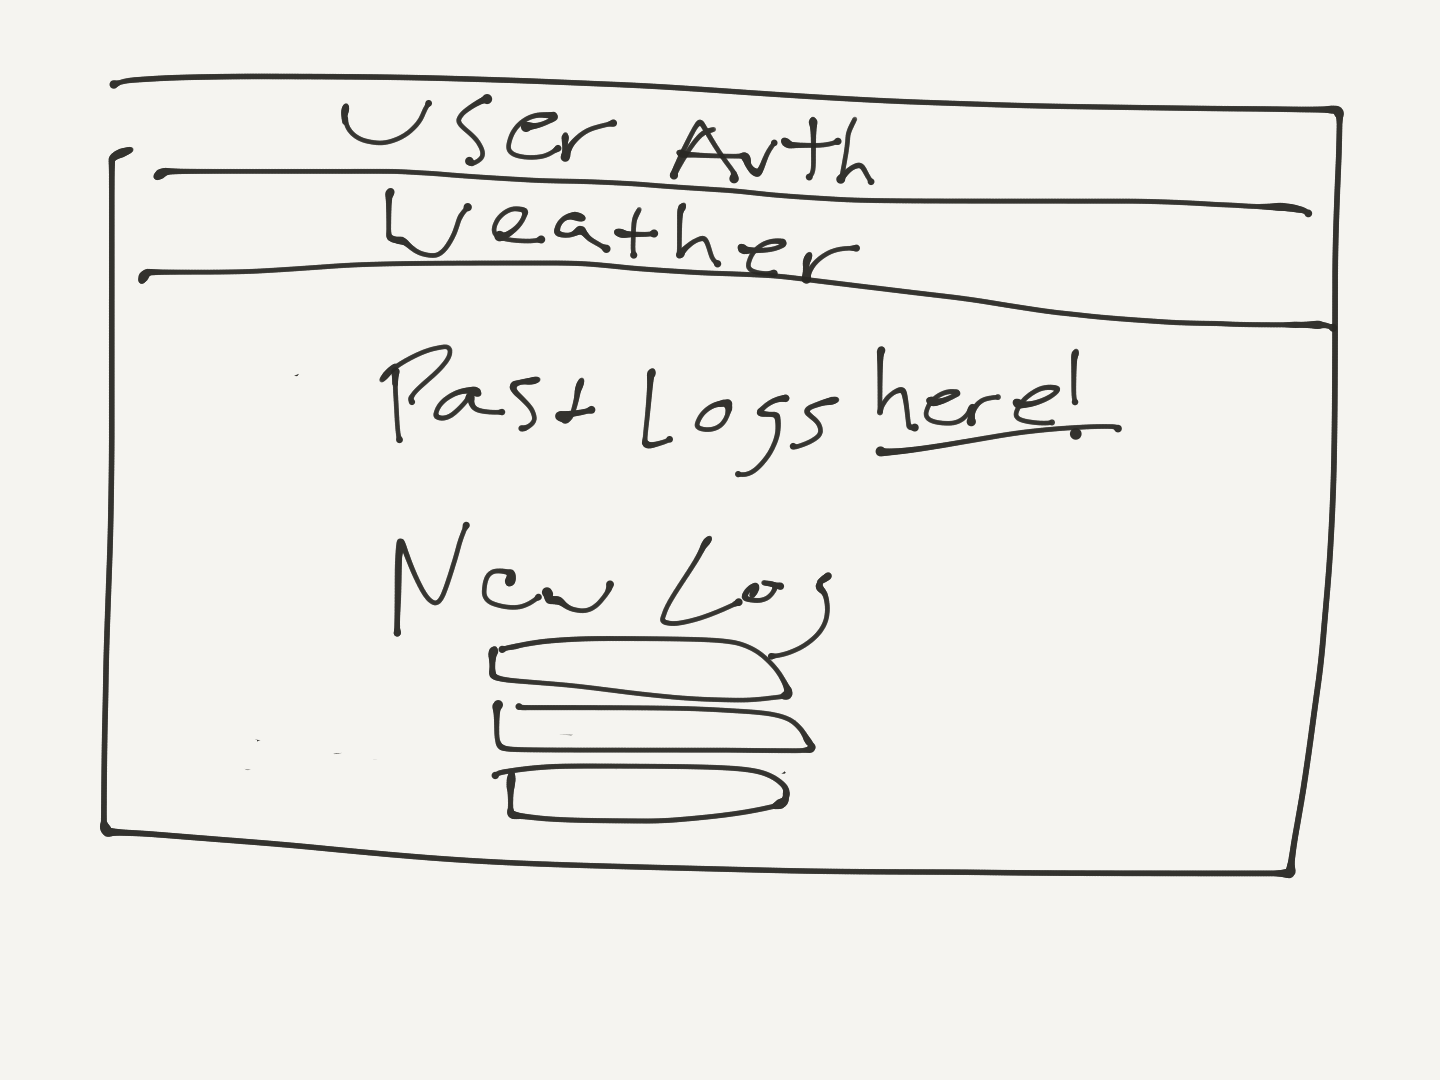 User Auth
Weather
Past Logs here!
New Log